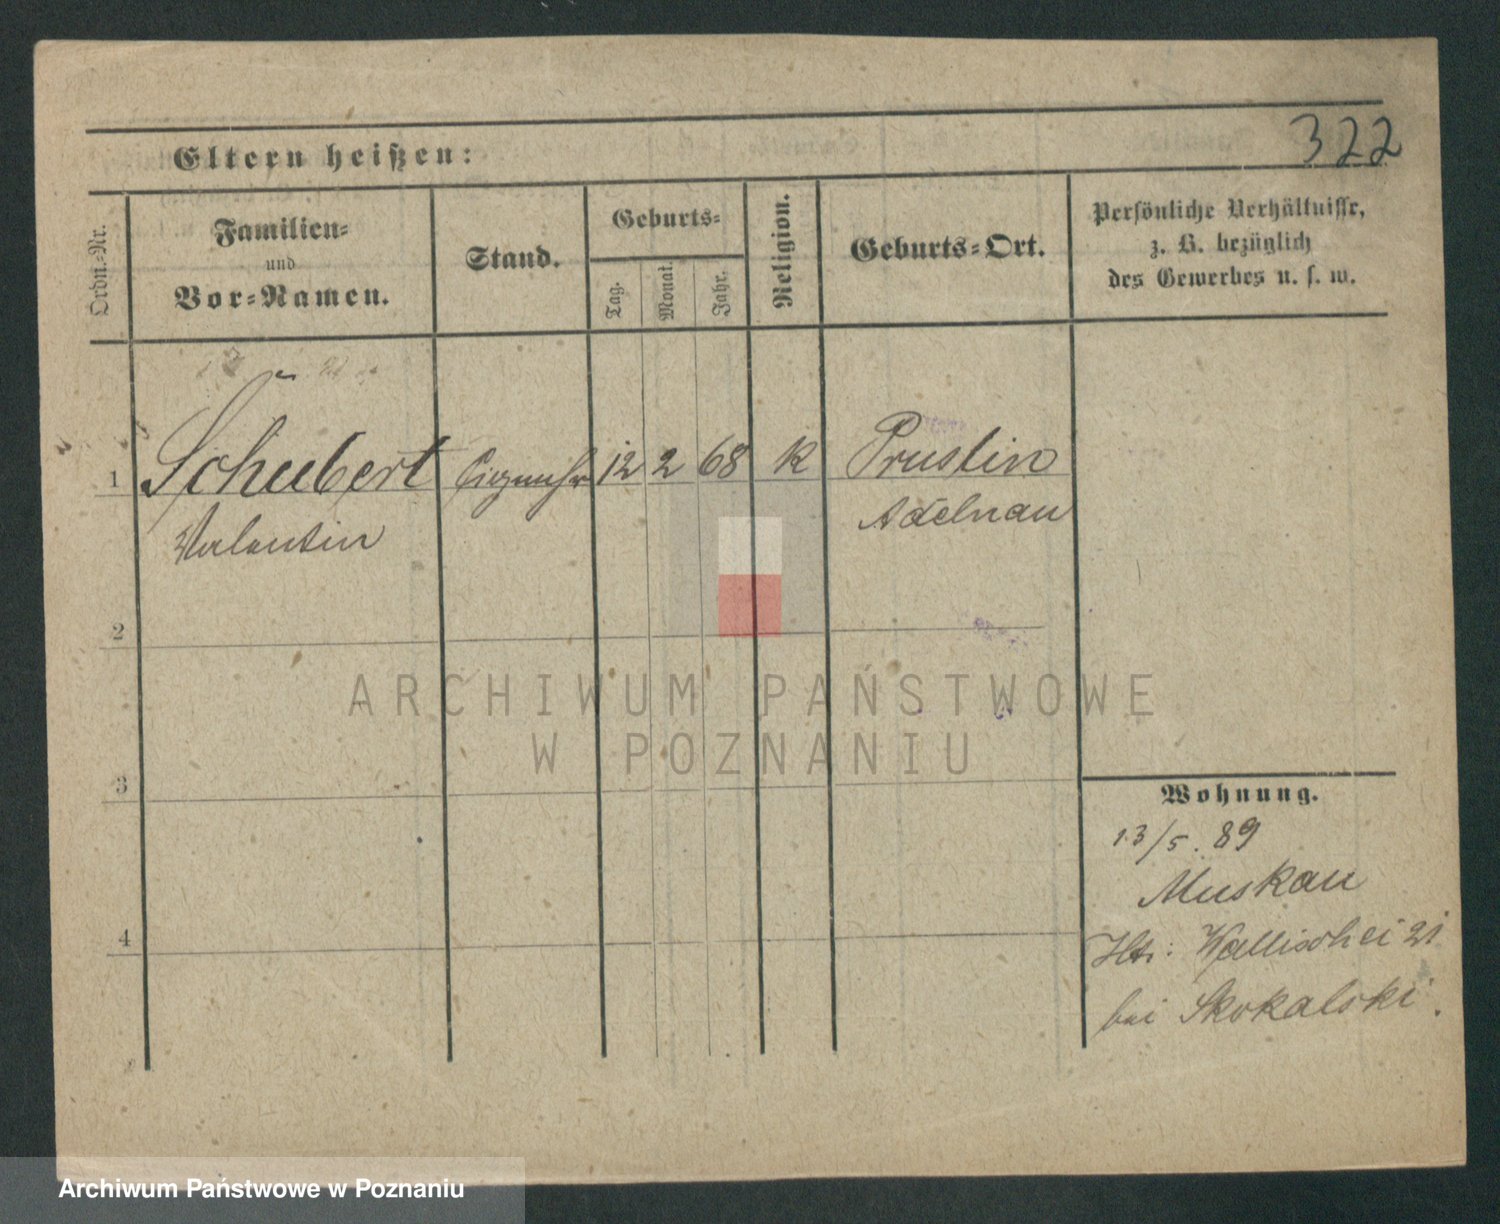 322
Eltern heißen:
Ordn.-Nr.
Familien-
und
Vor-Namen.
Stand.
Geburts-
Tag.
Monat.
Jahr.
Religion.
Geburts-Ort.
Persönliche Verhältnisse,
z. B. bezüglich
des Gewerbes u. s. w.
1 Schubert 12 2 68 K Prustin
Valentin Adelnau
2
ARCHIWUM PAŃSTWOWE
W POZNANIU
3
Wohnung.
13/5. 89
Muskau
4
Wallischei 21
bei Skokalski.
Archiwum Państwowe w Poznaniu